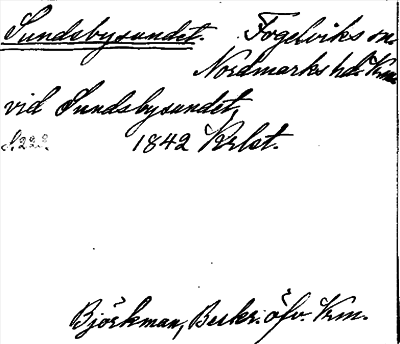 Sundsbysundet. Fogelviks sn.
Nordmarks hd. Vrm.
vid Sundsbysundet,
1842 Krlst.
Björkman, Beskr. öfv. Vrm.